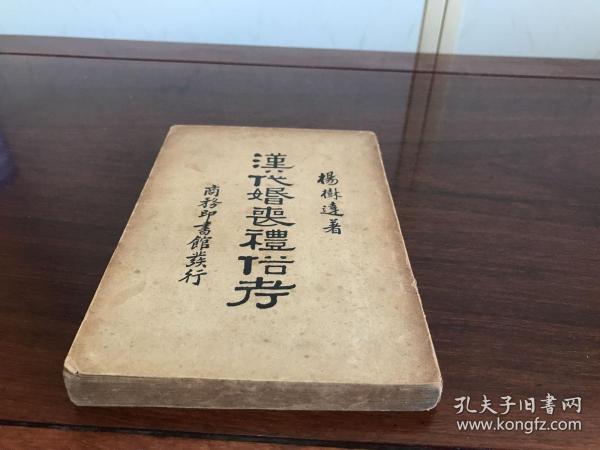 楊樹達著
漢代婚喪禮俗考
商務印書館發行
孔夫子旧書网
www.kongfz.com